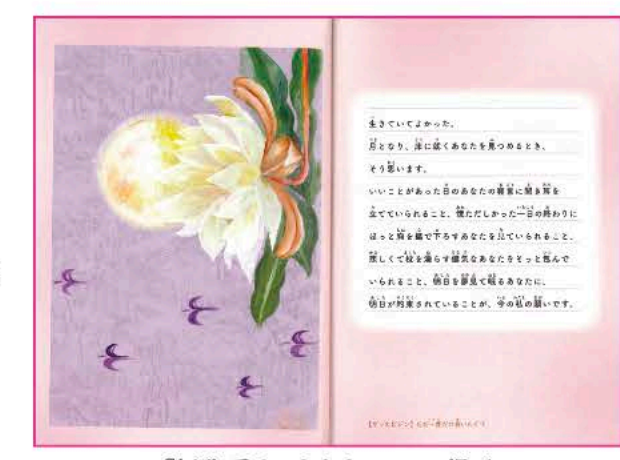 生きていてよかった。
月となり、床に就くあなたを見つめるとき、
そう思います。
いいことがあった日のあなたの寝言に聞き耳を
立てていられること、慌ただしかった一日の終わりに
ほっと胸を撫で下ろすあなたを見ていられること、
悲しくて枕を濡らす健気なあなたをそっと包んで
いられること、明日を夢見て眠るあなたに、
明日が約束されていることが、今の私の願いです。
【ゲッカビジン】